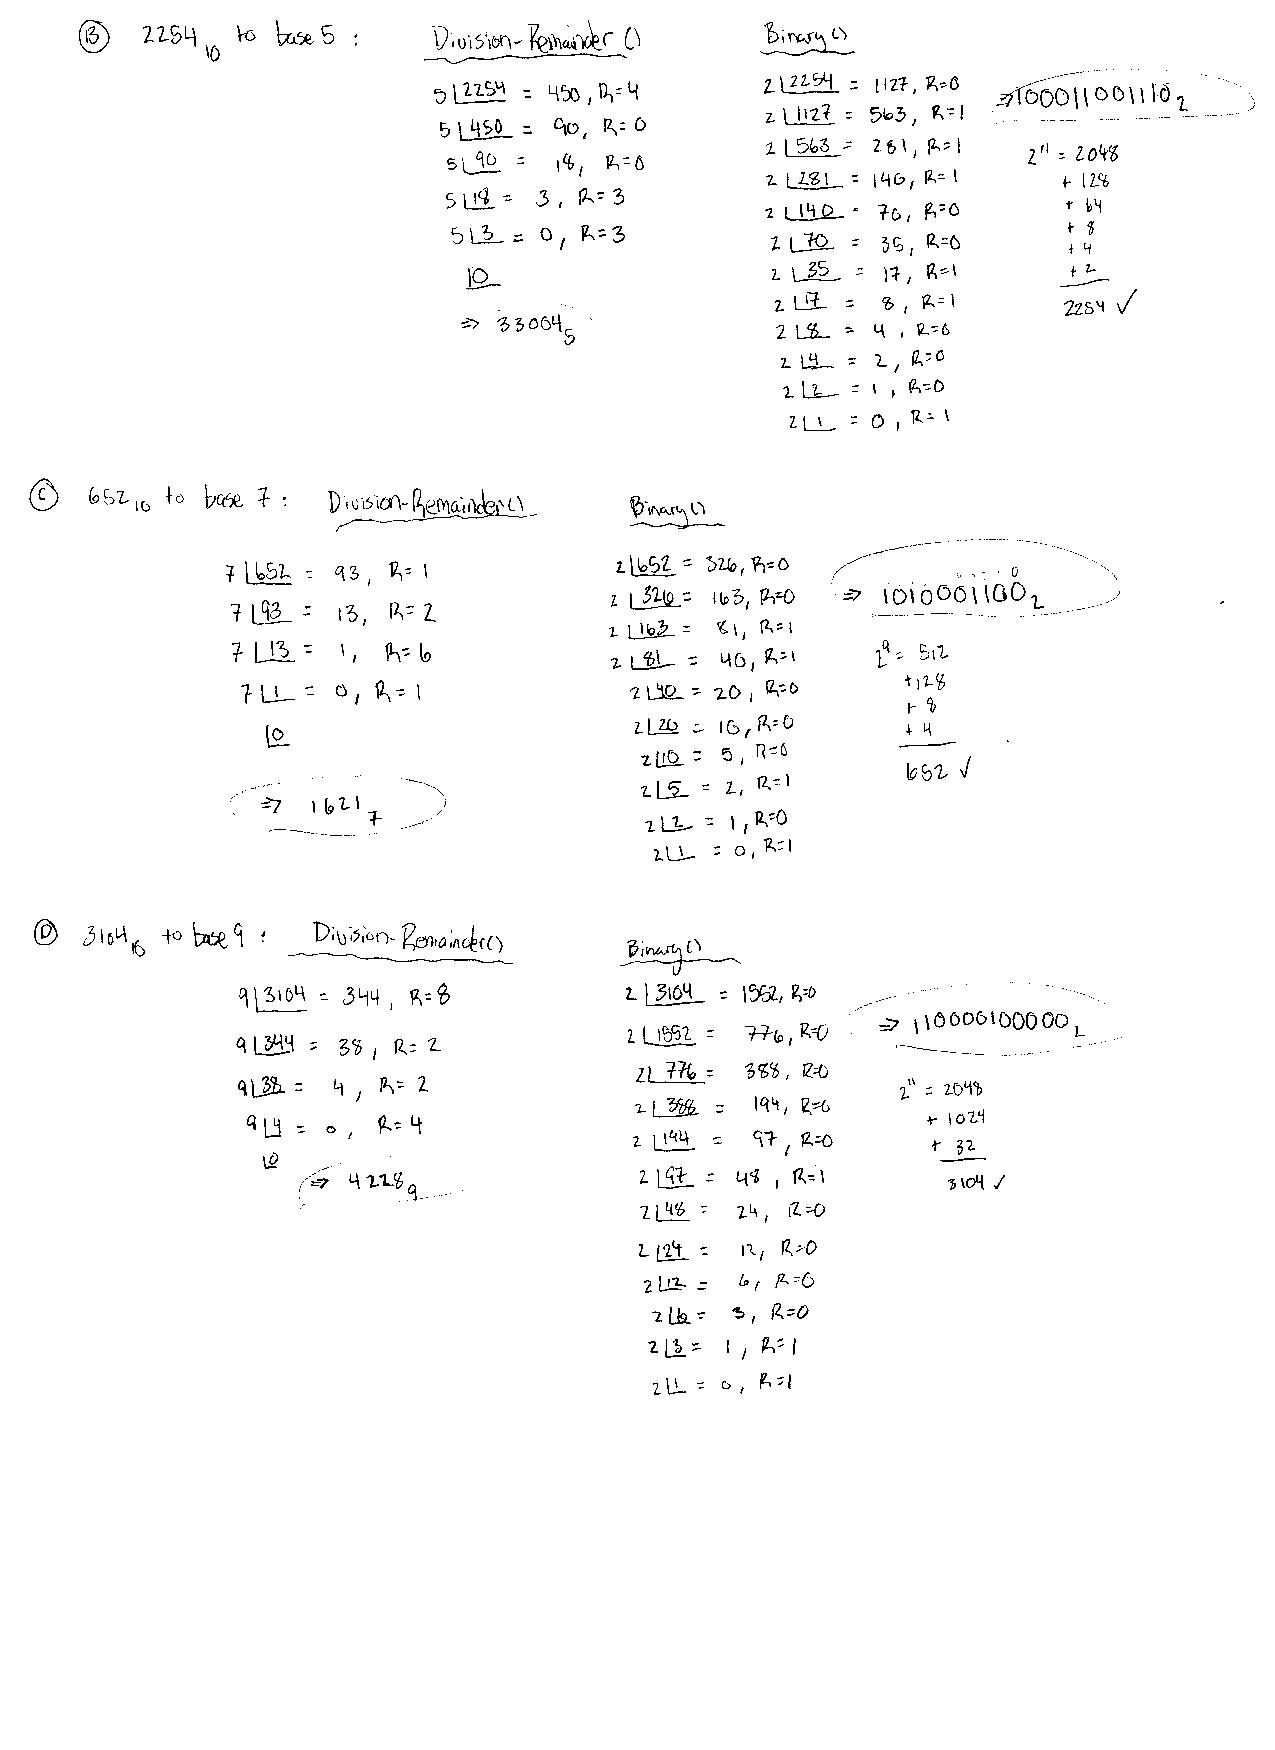 Ⓑ 2254₁₀ to base 5 : Division-Remainder ()
5 2254 = 450, R=4
5 450 = 90, R=0
5 90 = 18, R=0
5 18 = 3, R=3
5 3 = 0, R=3
0
⇒ 33004₅
Binary()
2 2254 = 1127, R=0
2 1127 = 563, R=1
2 563 = 281, R=1
2 281 = 140, R=1
2 140 = 70, R=0
2 70 = 35, R=0
2 35 = 17, R=1
2 17 = 8, R=1
2 8 = 4, R=0
2 4 = 2, R=0
2 2 = 1, R=0
2 1 = 0, R=1
⇒ 100011001110₂
2¹¹ = 2048
+ 128
+ 64
+ 8
+ 4
+ 2
2254 ✓
Ⓒ 652₁₀ to base 7 : Division-Remainder()
7 652 = 93, R=1
7 93 = 13, R=2
7 13 = 1, R=6
7 1 = 0, R=1
0
⇒ 1621₇
Binary()
2 652 = 326, R=0
2 326 = 163, R=0
2 163 = 81, R=1
2 81 = 40, R=1
2 40 = 20, R=0
2 20 = 10, R=0
2 10 = 5, R=0
2 5 = 2, R=1
2 2 = 1, R=0
2 1 = 0, R=1
0
⇒ 1010001100₂
2⁹ = 512
+128
+ 8
+ 4
652 ✓
Ⓓ 3104₁₀ to base 9 : Division-Remainder()
9 3104 = 344, R=8
9 344 = 38, R=2
9 38 = 4, R=2
9 4 = 0, R=4
0
⇒ 4228₉
Binary()
2 3104 = 1552, R=0
2 1552 = 776, R=0
2 776 = 388, R=0
2 388 = 194, R=0
2 194 = 97, R=0
2 97 = 48, R=1
2 48 = 24, R=0
2 24 = 12, R=0
2 12 = 6, R=0
2 6 = 3, R=0
2 3 = 1, R=1
2 1 = 0, R=1
⇒ 110000100000₂
2¹¹ = 2048
+ 1024
+ 32
3104 ✓